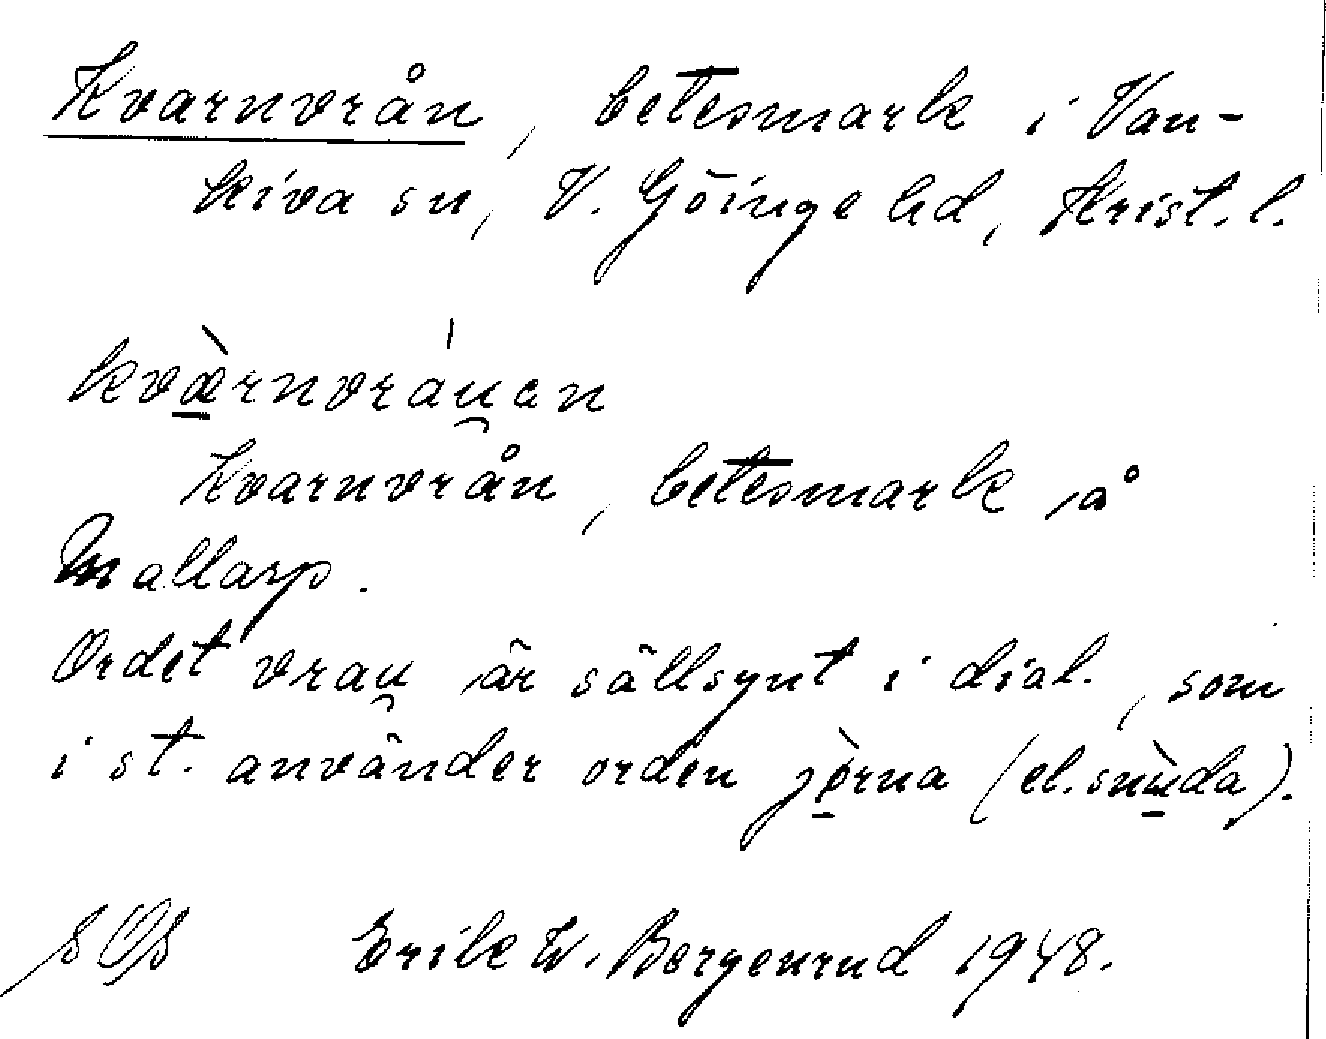 Kvarnvrån, betesmark i Van-
kiva sn, V. Göinge hd, Krist. l.
kvæ̀rnvráu̯en
Kvarnvrån, betesmark på
Mallarp.
Ordet vrau̯ är sällsynt i dial., som
i st. använder orden jèrna (el. snùda).
Erik W. Bergenrud 1948.